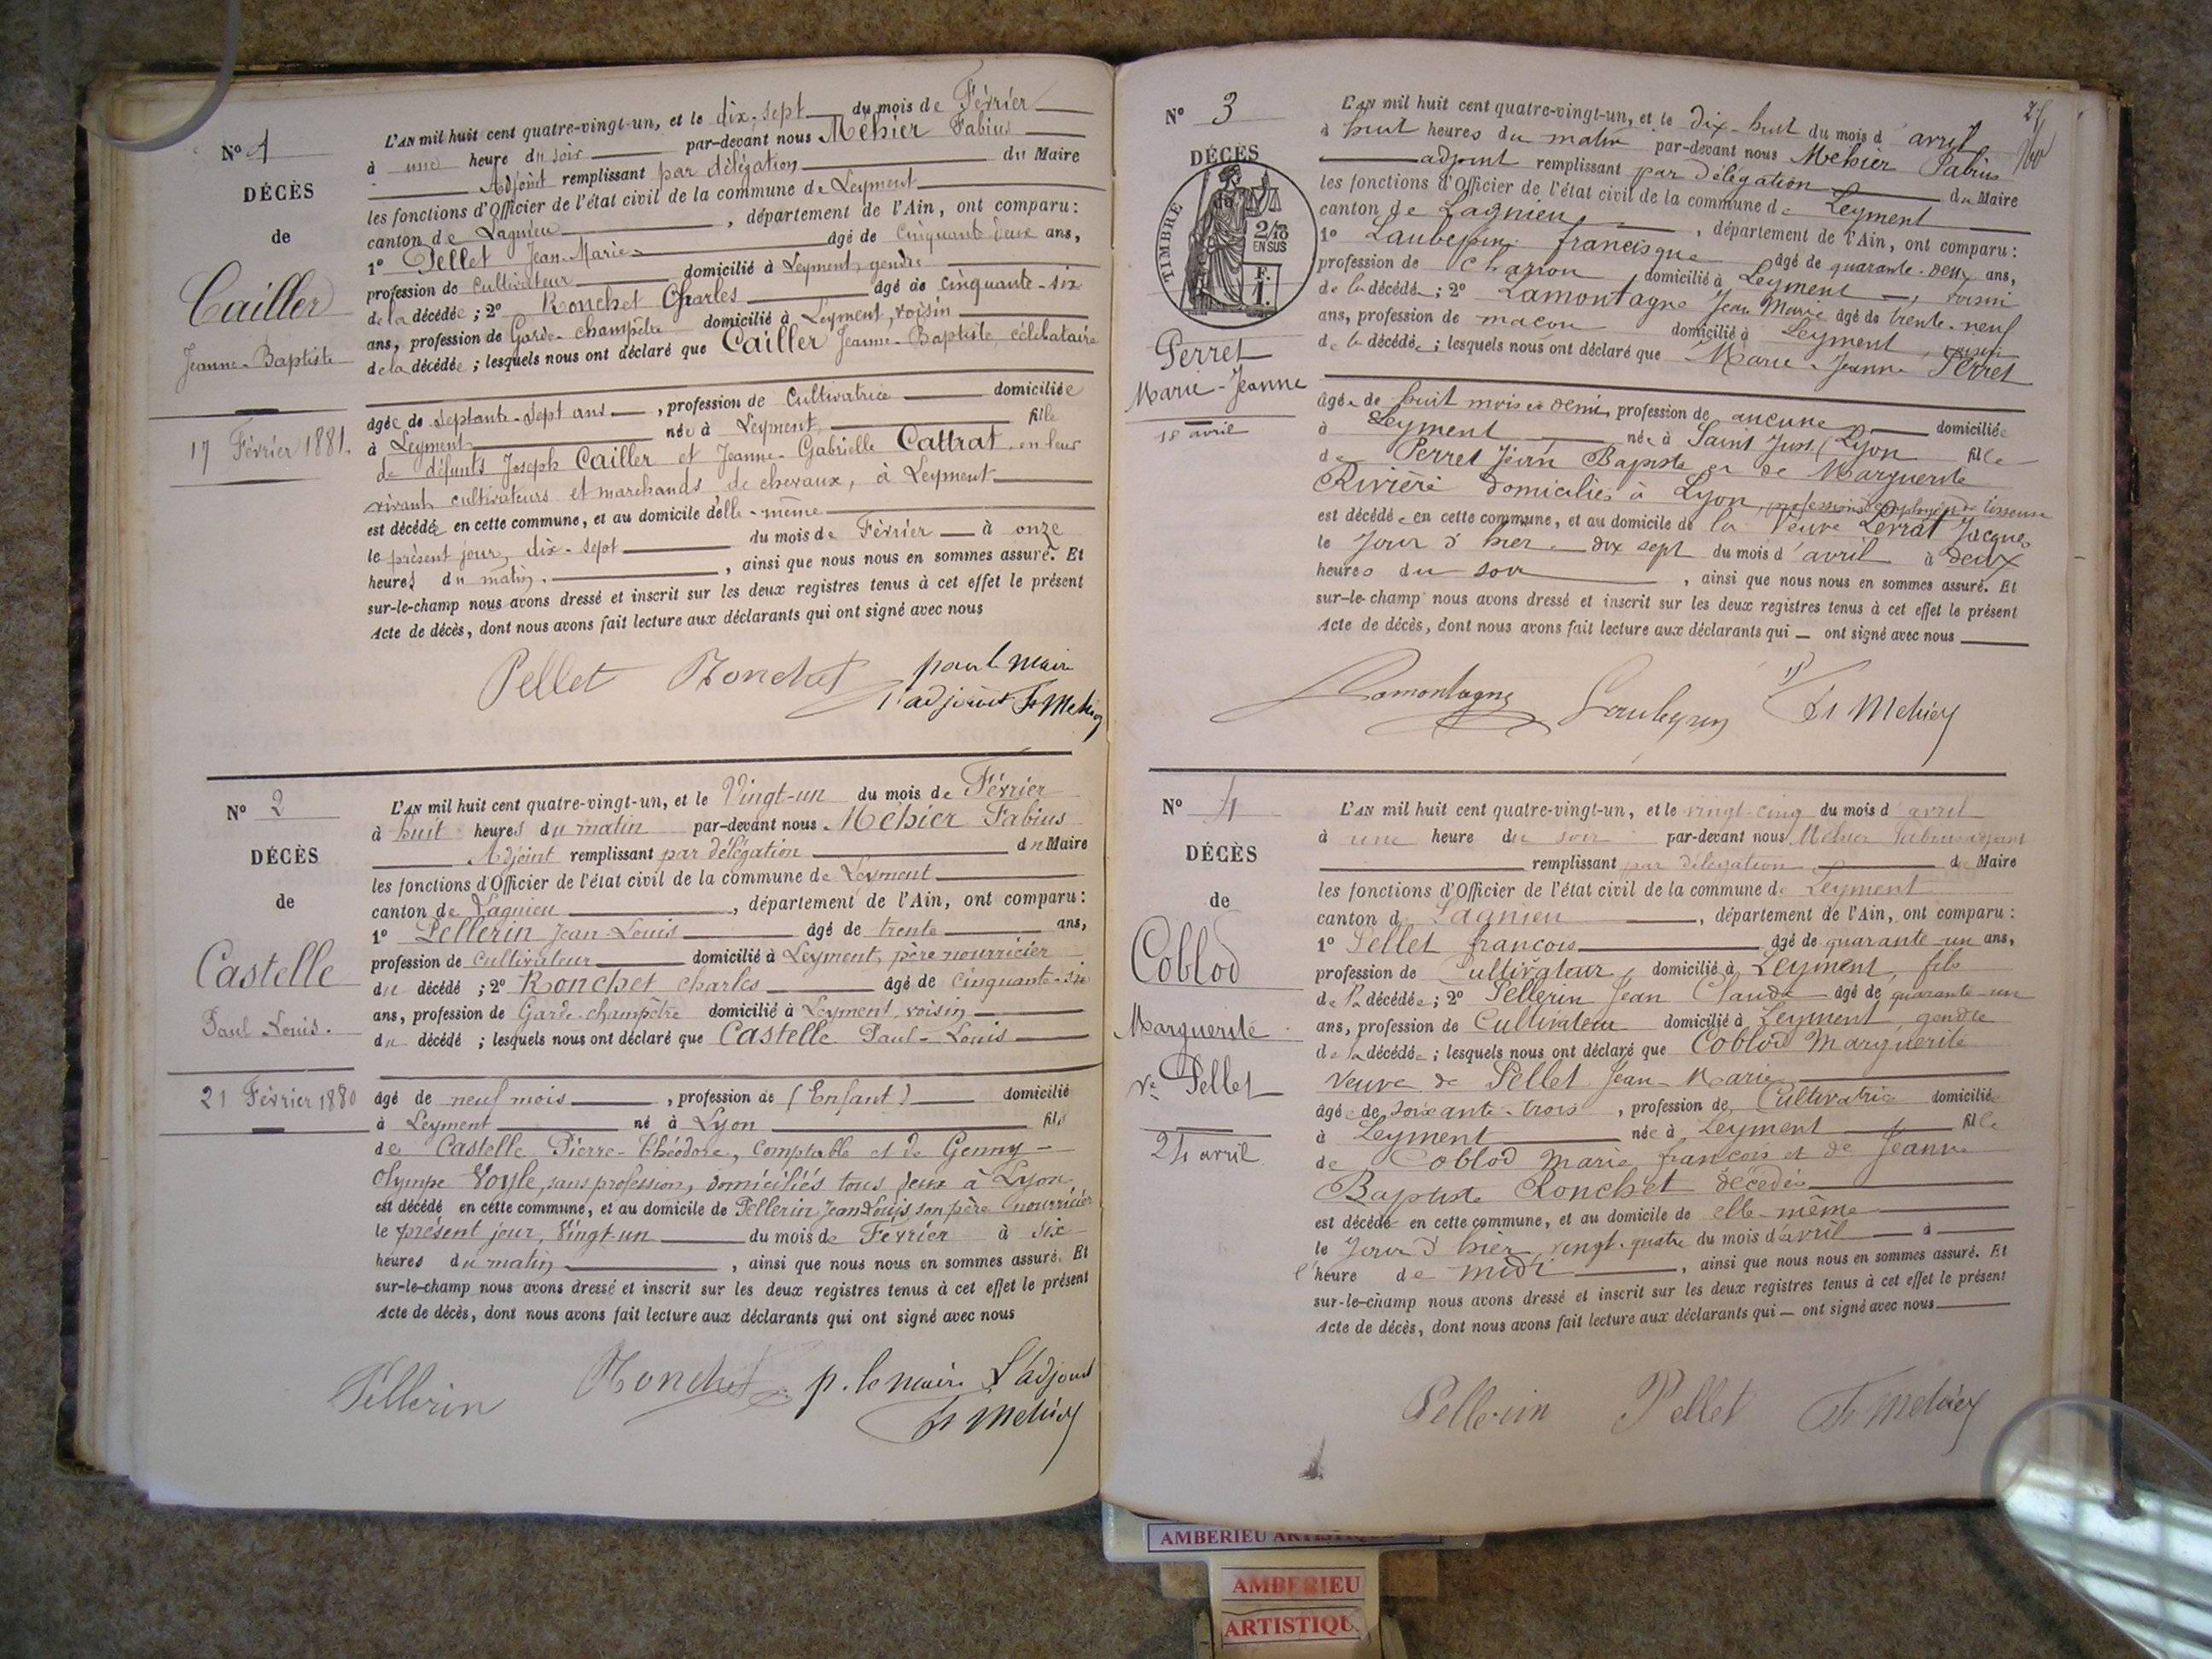 N° 1
DÉCÈS
de
Cailler
Jeanne-Baptiste
17 Février 1881.
L'AN mil huit cent quatre-vingt-un, et le dix-sept du mois de Février
à une heure du soir par-devant nous Méhier Fabius
Adjoint remplissant par délégation du Maire
les fonctions d'Officier de l'état civil de la commune de Leyment
canton de Lagnieu, département de l'Ain, ont comparu :
1° Pellet Jean-Marie âgé de cinquante deux ans,
profession de Cultivateur domicilié à Leyment, gendre
de la décédée ; 2° Ronchet Charles âgé de cinquante-six
ans, profession de Garde-champêtre domicilié à Leyment, voisin
de la décédée ; lesquels nous ont déclaré que Cailler Jeanne-Baptiste, célibataire
âgée de septante-sept ans, profession de Cultivatrice domiciliée
à Leyment née à Leyment, fille
de défunts Joseph Cailler et Jeanne-Gabrielle Cattrat en leur
vivant cultivateurs et marchands de chevaux, à Leyment
est décédée en cette commune, et au domicile d'elle-même
le présent jour, dix-sept du mois de Février à onze
heures du matin, ainsi que nous nous en sommes assuré. Et
sur-le-champ nous avons dressé et inscrit sur les deux registres tenus à cet effet le présent
Acte de décès, dont nous avons fait lecture aux déclarants qui ont signé avec nous
Pellet Ronchet pour le maire
l'adjoint Fs Mehier
N° 2
DÉCÈS
de
Castelle
Paul Louis.
21 Février 1880
L'AN mil huit cent quatre-vingt-un, et le Vingt-un du mois de Février
à huit heures du matin par-devant nous Méhier Fabius
Adjoint remplissant par délégation du Maire
les fonctions d'Officier de l'état civil de la commune de Leyment
canton de Lagnieu, département de l'Ain, ont comparu :
1° Pellerin Jean-Louis âgé de trente ans,
profession de Cultivateur domicilié à Leyment, père nourricier
du décédé ; 2° Ronchet Charles âgé de cinquante-six
ans, profession de Garde-champêtre domicilié à Leyment, voisin
du décédé ; lesquels nous ont déclaré que Castelle Paul-Louis
âgé de neuf mois, profession de (Enfant) domicilié
à Leyment né à Lyon fils
de Castelle Pierre-Théodore, Comptable et de Genny-
Olympe Voyle, sans profession, domiciliés tous deux à Lyon
est décédé en cette commune, et au domicile de Pellerin Jean-Louis son père nourricier
le présent jour, Vingt-un du mois de Février à six
heures du matin, ainsi que nous nous en sommes assuré. Et
sur-le-champ nous avons dressé et inscrit sur les deux registres tenus à cet effet le présent
Acte de décès, dont nous avons fait lecture aux déclarants qui ont signé avec nous
Pellerin Ronchet p. le maire L'adjoint
Fs Mehier
N° 3
DÉCÈS
de
TIMBRE
2/10
EN SUS
F.
1.
Perret
Marie-Jeanne
18 avril
L'AN mil huit cent quatre-vingt-un, et le dix-huit du mois d'avril
à huit heures du matin par-devant nous Mehier Fabius
adjoint remplissant par délégation du Maire
les fonctions d'Officier de l'état civil de la commune de Leyment
canton de Lagnieu, département de l'Ain, ont comparu :
1° Laubepin francisque âgé de quarante-deux ans,
profession de Charron domicilié à Leyment, voisin
de la décédée ; 2° Lamontagne Jean Marie âgé de trente-neuf
ans, profession de maçon domicilié à Leyment, voisin
de la décédée ; lesquels nous ont déclaré que Marie-Jeanne Perret
âgée de huit mois et demi, profession de aucune domiciliée
à Leyment née à Saint Just (Lyon fille
de Perret Jean Baptiste et de Marguerite
Rivière domiciliés à Lyon,
est décédée en cette commune, et au domicile de la Veuve Jacques
le Jour d'hier dix sept du mois d'avril à deux
heures du soir, ainsi que nous nous en sommes assuré. Et
sur-le-champ nous avons dressé et inscrit sur les deux registres tenus à cet effet le présent
Acte de décès, dont nous avons fait lecture aux déclarants qui — ont signé avec nous
Lamontagne Laubepin Fs Mehier
N° 4
DÉCÈS
de
Coblod
Marguerite
Ve Pellet
24 avril
L'AN mil huit cent quatre-vingt-un, et le vingt-cinq du mois d'avril
à une heure du soir par-devant nous Mehier Fabius adjoint
remplissant par délégation du Maire
les fonctions d'Officier de l'état civil de la commune de Leyment
canton de Lagnieu, département de l'Ain, ont comparu :
1° Pellet françois âgé de quarante-un ans,
profession de Cultivateur, domicilié à Leyment, fils
de la décédée ; 2° Pellerin Jean Claude âgé de quarante-un
ans, profession de Cultivateur domicilié à Leyment, gendre
de la décédée ; lesquels nous ont déclaré que Coblod Marguerite
veuve de Pellet Jean-Marie
âgée de soixante-trois, profession de Cultivatrice domiciliée
à Leyment née à Leyment fille
de Coblod Marie françois et de Jeanne
Baptiste Ronchet décédés
est décédée en cette commune, et au domicile de elle-même
le Jour d'hier vingt-quatre du mois d'avril à
l'heure de midi, ainsi que nous nous en sommes assuré. Et
sur-le-champ nous avons dressé et inscrit sur les deux registres tenus à cet effet le présent
Acte de décès, dont nous avons fait lecture aux déclarants qui — ont signé avec nous
Pellerin Pellet Fs Mehier
AMBERIEU ARTISTIQUE
AMBERIEU
ARTISTIQU